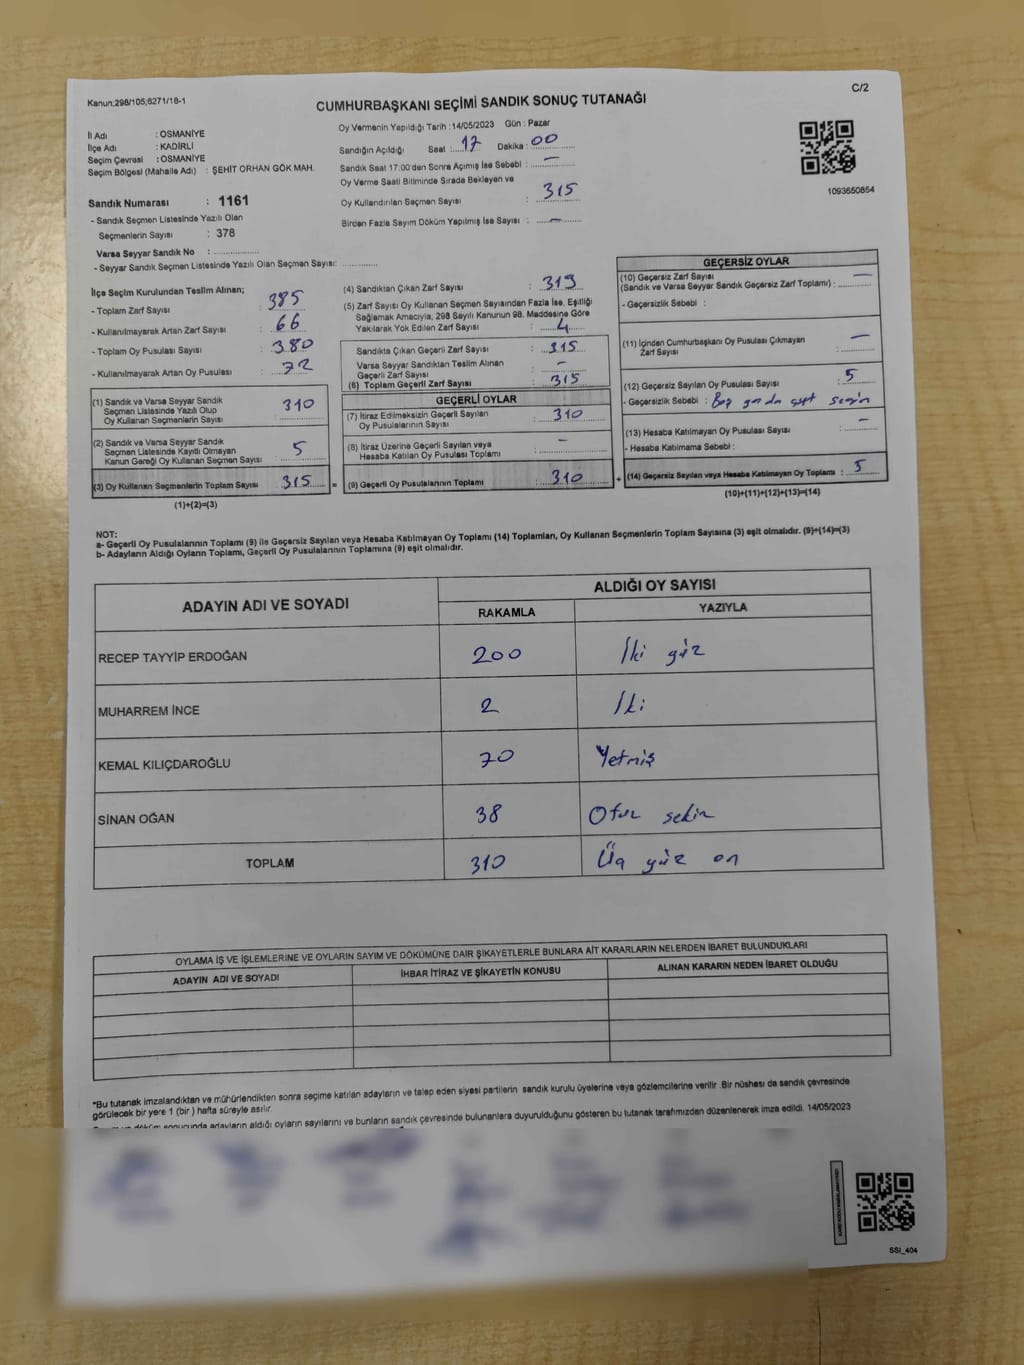 Kanun;298/105;6271/18-1
C/2
CUMHURBAŞKANI SEÇİMİ SANDIK SONUÇ TUTANAĞI
İl Adı : OSMANİYE
İlçe Adı : KADİRLİ
Seçim Çevresi : OSMANİYE
Seçim Bölgesi (Mahalle Adı) : ŞEHİT ORHAN GÖK MAH.
Oy Vermenin Yapıldığı Tarih :14/05/2023 Gün : Pazar
Sandığın Açıldığı Saat : 17 Dakika : 00
Sandık Saat 17:00'den Sonra Açmış İse Sebebi : —
Oy Verme Saati Bitiminde Sırada Bekleyen ve
Oy Kullandırılan Seçmen Sayısı : 315
Birden Fazla Sayım Döküm Yapılmış İse Sayısı : —
1093650854
Sandık Numarası : 1161
- Sandık Seçmen Listesinde Yazılı Olan
Seçmenlerin Sayısı : 378
Varsa Seyyar Sandık No :
- Seyyar Sandık Seçmen Listesinde Yazılı Olan Seçmen Sayısı:
İlçe Seçim Kurulundan Teslim Alınan;
- Toplam Zarf Sayısı : 385
- Kullanılmayarak Artan Zarf Sayısı : 66
- Toplam Oy Pusulası Sayısı : 380
- Kullanılmayarak Artan Oy Pusulası : 72
(1) Sandık ve Varsa Seyyar Sandık
Seçmen Listesinde Yazılı Olup
Oy Kullanan Seçmenlerin Sayısı : 310
(2) Sandık ve Varsa Seyyar Sandık
Seçmen Listesinde Kayıtlı Olmayan
Kanun Gereği Oy Kullanan Seçmen Sayısı : 5
(3) Oy Kullanan Seçmenlerin Toplam Sayısı : 315 =
(1)+(2)=(3)
(4) Sandıktan Çıkan Zarf Sayısı : 319
(5) Zarf Sayısı Oy Kullanan Seçmen Sayısından Fazla İse, Eşitliği
Sağlamak Amacıyla; 298 Sayılı Kanunun 98. Maddesine Göre
Yakılarak Yok Edilen Zarf Sayısı : 4
Sandıkta Çıkan Geçerli Zarf Sayısı : 315
Varsa Seyyar Sandıktan Teslim Alınan
Geçerli Zarf Sayısı : —
(6) Toplam Geçerli Zarf Sayısı : 315
GEÇERLİ OYLAR
(7) İtiraz Edilmeksizin Geçerli Sayılan
Oy Pusulalarının Sayısı : 310
(8) İtiraz Üzerine Geçerli Sayılan veya
Hesaba Katılan Oy Pusulası Toplamı : —
(9) Geçerli Oy Pusulalarının Toplamı : 310 +
GEÇERSİZ OYLAR
(10) Geçersiz Zarf Sayısı
(Sandık ve Varsa Seyyar Sandık Geçersiz Zarf Toplamı) : —
- Geçersizlik Sebebi :
(11) İçinden Cumhurbaşkanı Oy Pusulası Çıkmayan
Zarf Sayısı : —
(12) Geçersiz Sayılan Oy Pusulası Sayısı : 5
- Geçersizlik Sebebi :
(13) Hesaba Katılmayan Oy Pusulası Sayısı : —
- Hesaba Katılmama Sebebi :
(14) Geçersiz Sayılan veya Hesaba Katılmayan Oy Toplamı : 5
(10)+(11)+(12)+(13)=(14)
NOT:
a- Geçerli Oy Pusulalarının Toplamı (9) ile Geçersiz Sayılan veya Hesaba Katılmayan Oy Toplamı (14) Toplamları, Oy Kullanan Seçmenlerin Toplam Sayısına (3) eşit olmalıdır. (9)+(14)=(3)
b- Adayların Aldığı Oyların Toplamı, Geçerli Oy Pusulalarının Toplamına (9) eşit olmalıdır.
ADAYIN ADI VE SOYADI ALDIĞI OY SAYISI
RAKAMLA YAZIYLA
RECEP TAYYİP ERDOĞAN 200 İki yüz
MUHARREM İNCE 2 İki
KEMAL KILIÇDAROĞLU 70 Yetmiş
SİNAN OĞAN 38 Otuz sekiz
TOPLAM 310 Üç yüz on
OYLAMA İŞ VE İŞLEMLERİNE VE OYLARIN SAYIM VE DÖKÜMÜNE DAİR ŞİKAYETLERLE BUNLARA AİT KARARLARIN NELERDEN İBARET BULUNDUKLARI
ADAYIN ADI VE SOYADI İHBAR İTİRAZ VE ŞİKAYETİN KONUSU ALINAN KARARIN NEDEN İBARET OLDUĞU
*Bu tutanak imzalandıktan ve mühürlendikten sonra seçime katılan adayların ve talep eden siyasi partilerin sandık kurulu üyelerine veya gözlemcilerine verilir .Bir nüshası da sandık çevresinde
görülecek bir yere 1 (bir ) hafta süreyle asılır.
döküm sonucunda adayların aldığı oyların sayılarını ve bunların sandık çevresinde bulunanlara duyurulduğunu gösteren bu tutanak tarafımızdan düzenlenerek imza edildi. 14/05/2023
SSI_404